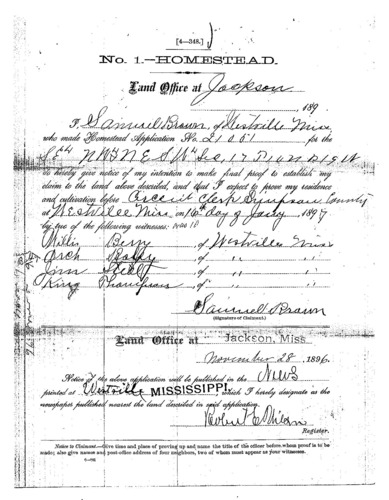 [4—348.]
No. 1.—HOMESTEAD.
Land Office at Jackson
, 189
I, Samuel Brown, of Westville Miss
who made Homestead Application No. 21061 for the
do hereby give notice of my intention to make final proof to establish my
claim to the land above described, and that I expect to prove my residence
and cultivation before Circuit Clerk Simpson County
at Westville Miss on 16th day of Jany, 1897
by two of the following witnesses:
Willis Berry, of Westville Miss
Arch , of " "
Jim , of " "
King Thompson, of " "
Samuel Brown
(Signature of Claimant.)
Land Office at Jackson, Miss
November 28 1896.
Notice of the above application will be published in the News
printed at Westville MISSISSIPPI, which I hereby designate as the
newspaper published nearest the land described in said application.
Robert E. Wilson
Register.
Notice to Claimant.—Give time and place of proving up and name the title of the officer before whom proof is to be
made; also give names and post-office address of four neighbors, two of whom must appear as your witnesses.